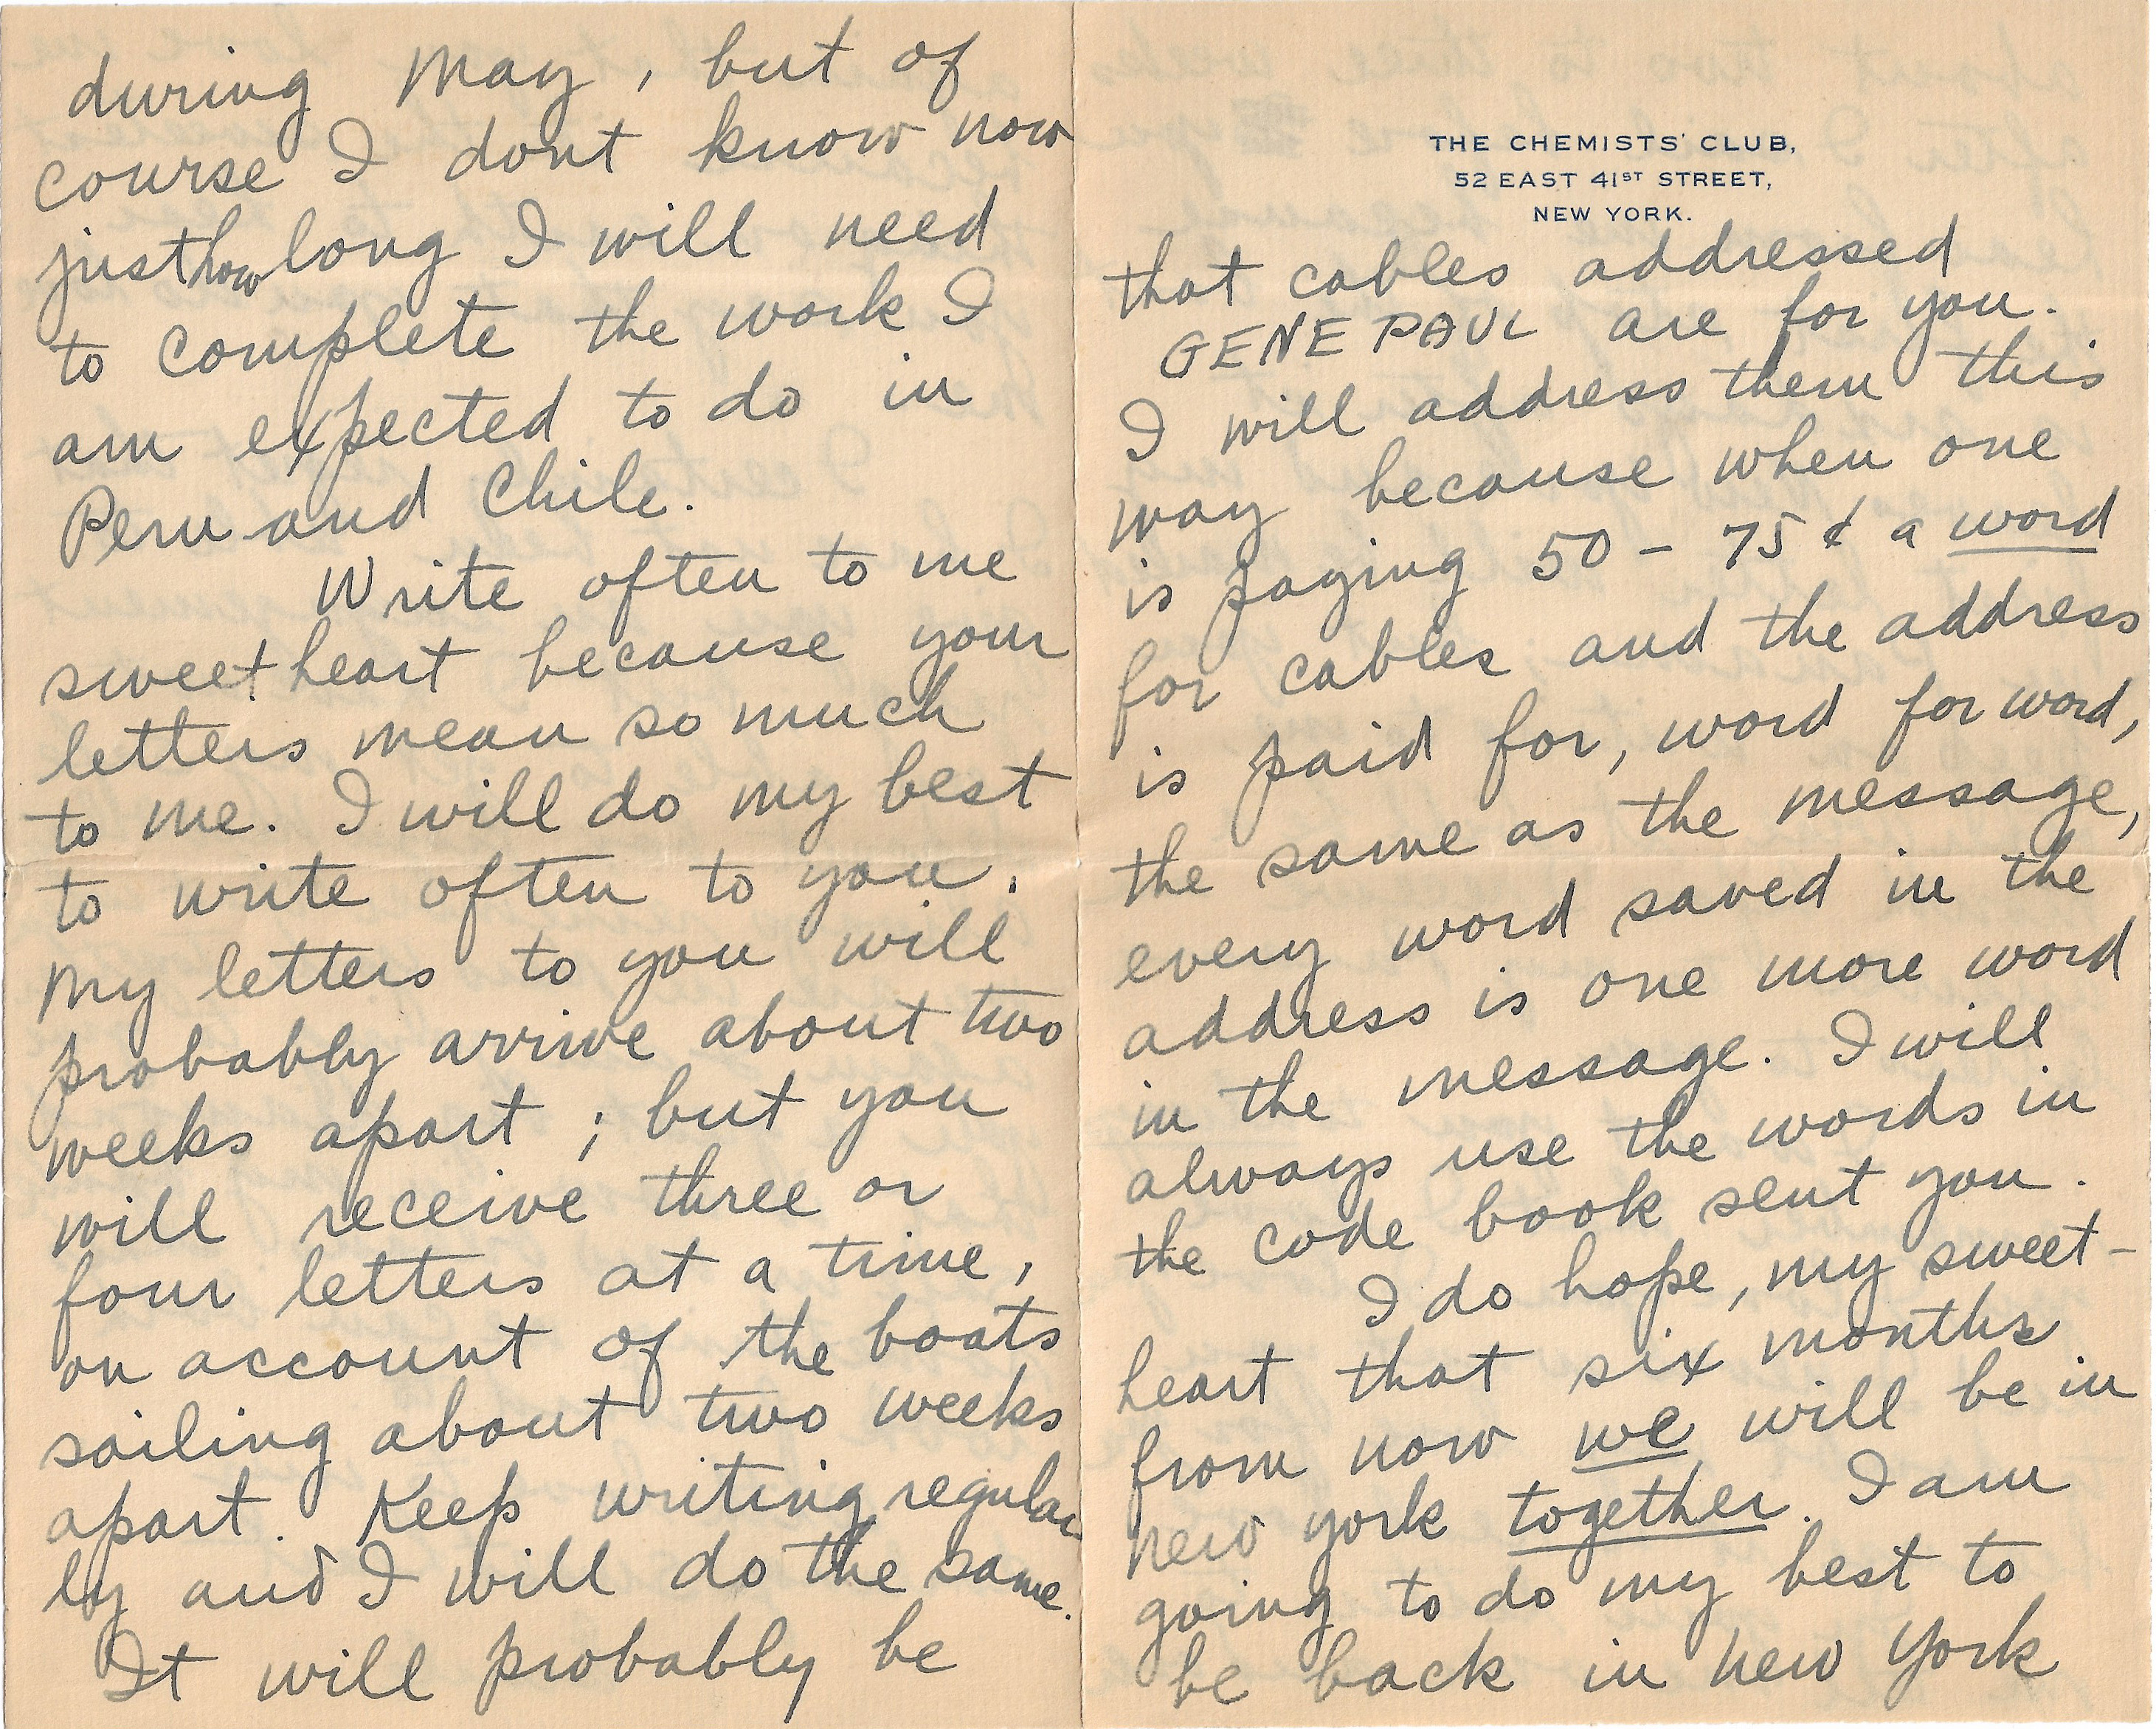 THE CHEMISTS' CLUB,
52 EAST 41ST STREET,
NEW YORK.
that cables addressed
GENEPAUL are for you.
I will address them this
way because when one
is paying 50 - 75 ¢ a word
for cables and the address
is paid for, word for word,
the same as the message,
every word saved in the
address is one more word
in the message. I will
always use the words in
the code book sent you.
I do hope, my sweet-
heart that six months
from now we will be in
New York together. I am
going to do my best to
be back in New York
during May, but of
course I dont know now
just how long I will need
to complete the work I
am expected to do in
Peru and Chile.
Write often to me
sweetheart because your
letters mean so much
to me. I will do my best
to write often to you.
My letters to you will
probably arrive about two
weeks apart; but you
will receive three or
four letters at a time,
on account of the boats
sailing about two weeks
apart. Keep writing regular
ly and I will do the same.
It will probably be